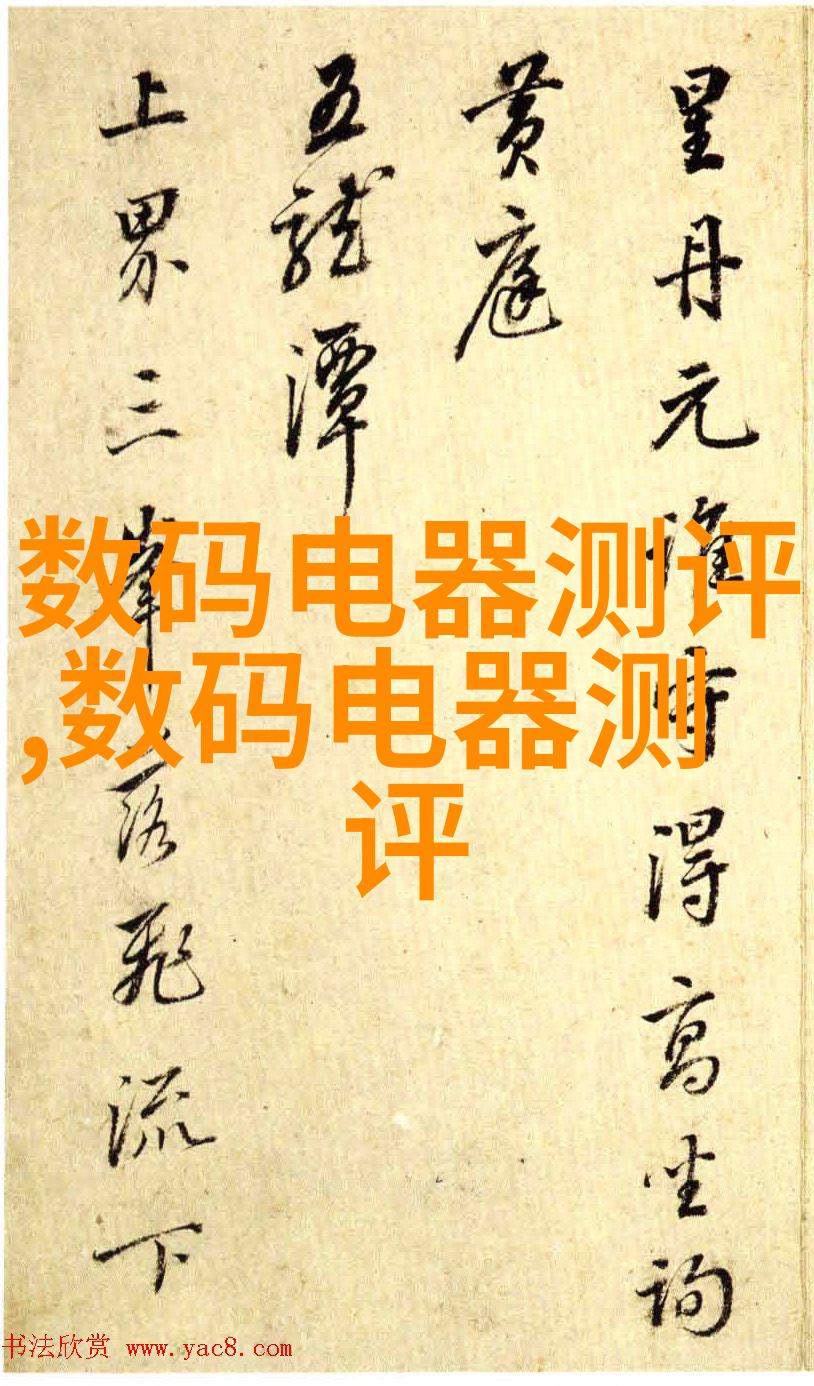 星丹元得高坐詢
黄庭
五龍潭
上界三峯落飛流下
数码电器测评
,数码电器测
评
书法欣赏 www.yac8.com